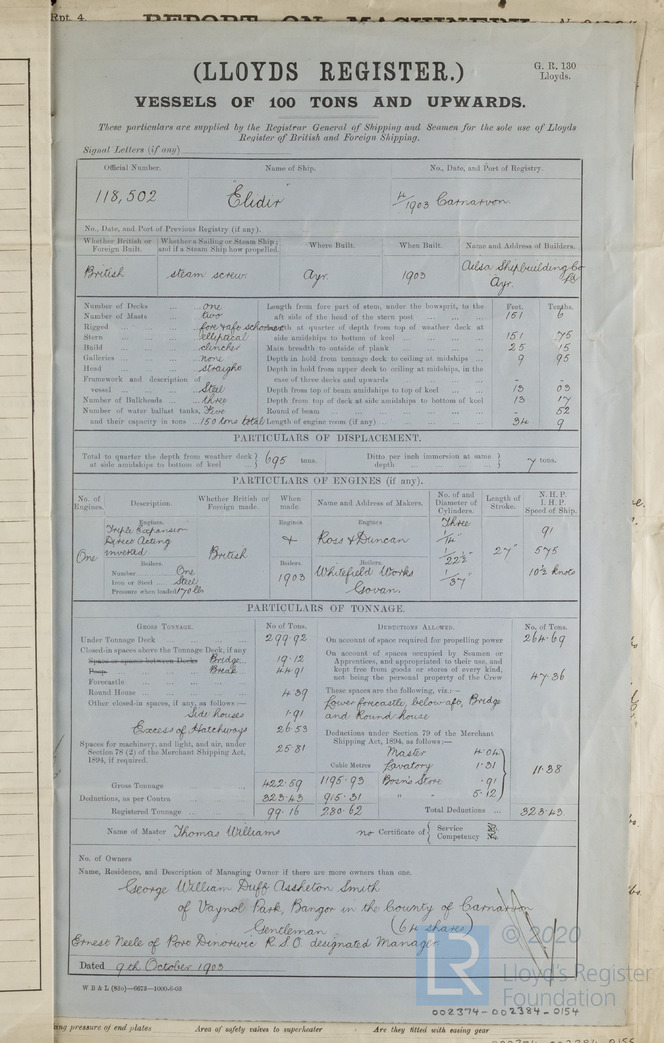 Rpt. 4. REPORT ON MACHINERY
(LLOYDS REGISTER.)
G. R. 130
Lloyds.
VESSELS OF 100 TONS AND UPWARDS.
These particulars are supplied by the Registrar General of Shipping and Seamen for the sole use of Lloyds
Register of British and Foreign Shipping.
Signal Letters (if any)
Official Number. Name of Ship. No., Date, and Port of Registry.
118,502 "Elidir" 4/1903 Carnarvon.
No., Date, and Port of Previous Registry (if any).
Whether British or Foreign Built. Whether a Sailing or Steam Ship; and if a Steam Ship how propelled. Where Built. When Built. Name and Address of Builders.
British steam screw Ayr. 1903 Ailsa Shipbuilding Co Ld
Ayr.
Feet. Tenths.
Number of Decks one Length from fore part of stem, under the bowsprit, to the
Number of Masts two aft side of the head of the stern post 151 6
Rigged fore & aft schooner Length at quarter of depth from top of weather deck at
Stern elliptical side amidships to bottom of keel 151 75
Build clincher Main breadth to outside of plank 25 15
Galleries none Depth in hold from tonnage deck to ceiling at midships 9 95
Head straight Depth in hold from upper deck to ceiling at midships, in the
Framework and description of case of three decks and upwards - -
vessel Steel Depth from top of beam amidships to top of keel 13 03
Number of Bulkheads three Depth from top of deck at side amidships to bottom of keel 13 17
Number of water ballast tanks, Five Round of beam - 52
and their capacity in tons 150 tons total Length of engine room (if any) 34 9
PARTICULARS OF DISPLACEMENT.
Total to quarter the depth from weather deck at side amidships to bottom of keel } 695 tons. Ditto per inch immersion at same depth } 7 tons.
PARTICULARS OF ENGINES (if any).
No. of Engines. Description. Whether British or Foreign made. When made. Name and Address of Makers. No. of and Diameter of Cylinders. Length of Stroke. N. H. P. I. H. P. Speed of Ship.
Engines. Engines. Engines Three
Triple Expansion 91
Direct Acting & Ross & Duncan 1/14"
inverted British 1/22½" 27" 575
One Boilers. Boilers. Boilers.
Number One 1903 Whitefield Works 1/37" 10½ knots
Iron or Steel Steel Govan.
Pressure when loaded 170 lb
PARTICULARS OF TONNAGE.
GROSS TONNAGE. No of Tons. DEDUCTIONS ALLOWED. No. of Tons.
Under Tonnage Deck 299.92 On account of space required for propelling power 264.69
Closed-in spaces above the Tonnage Deck, if any On account of spaces occupied by Seamen or
Space or spaces between Decks Bridge 19.12 Apprentices, and appropriated to their use, and
Poop Break 44.91 kept free from goods or stores of every kind,
Forecastle not being the personal property of the Crew 47.36
Round House 4.39 These spaces are the following, viz.:—
Other closed-in spaces, if any, as follows:— Lower forecastle, below aft, Bridge
Side houses 1.91 and Round house
Excess of Hatchways 26.53 Deductions under Section 79 of the Merchant
Spaces for machinery, and light, and air, under 25.81 Shipping Act, 1894, as follows:—
Section 78 (2) of the Merchant Shipping Act, Master 4.04
1894, if required. Cubic Metres Lavatory 1.31 11.38
Gross Tonnage 422.59 1195.93 Bosn's Store .91
Deductions, as per Contra 323.43 915.31 " " 5.12
Registered Tonnage 99.16 280.62 Total Deductions 323.43
Name of Master Thomas Williams no Certificate of { Service No. Competency No.
No. of Owners
Name, Residence, and Description of Managing Owner if there are more owners than one.
George William Duff Assheton Smith
of Vaynol Park, Bangor in the County of Carnarvon
Gentleman (64 shares)
Ernest Neele of Port Dinorwic R.S.O. designated Manager
Dated 9th October 1903
W B & L (83o)—6673—1000-6-03
LR
© 2020
Lloyd's Register
Foundation
002374-002384-0154
ing pressure of end plates Area of safety valves to superheater Are they fitted with easing gear